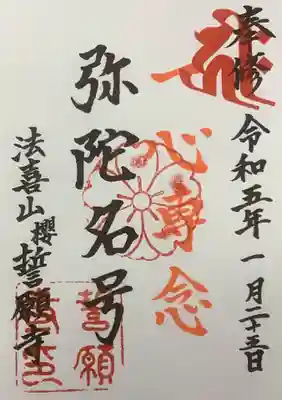 奉修 令和五年 一月二十五日
一心專念
弥陀名号
法喜山 櫻 誓願寺
誓願